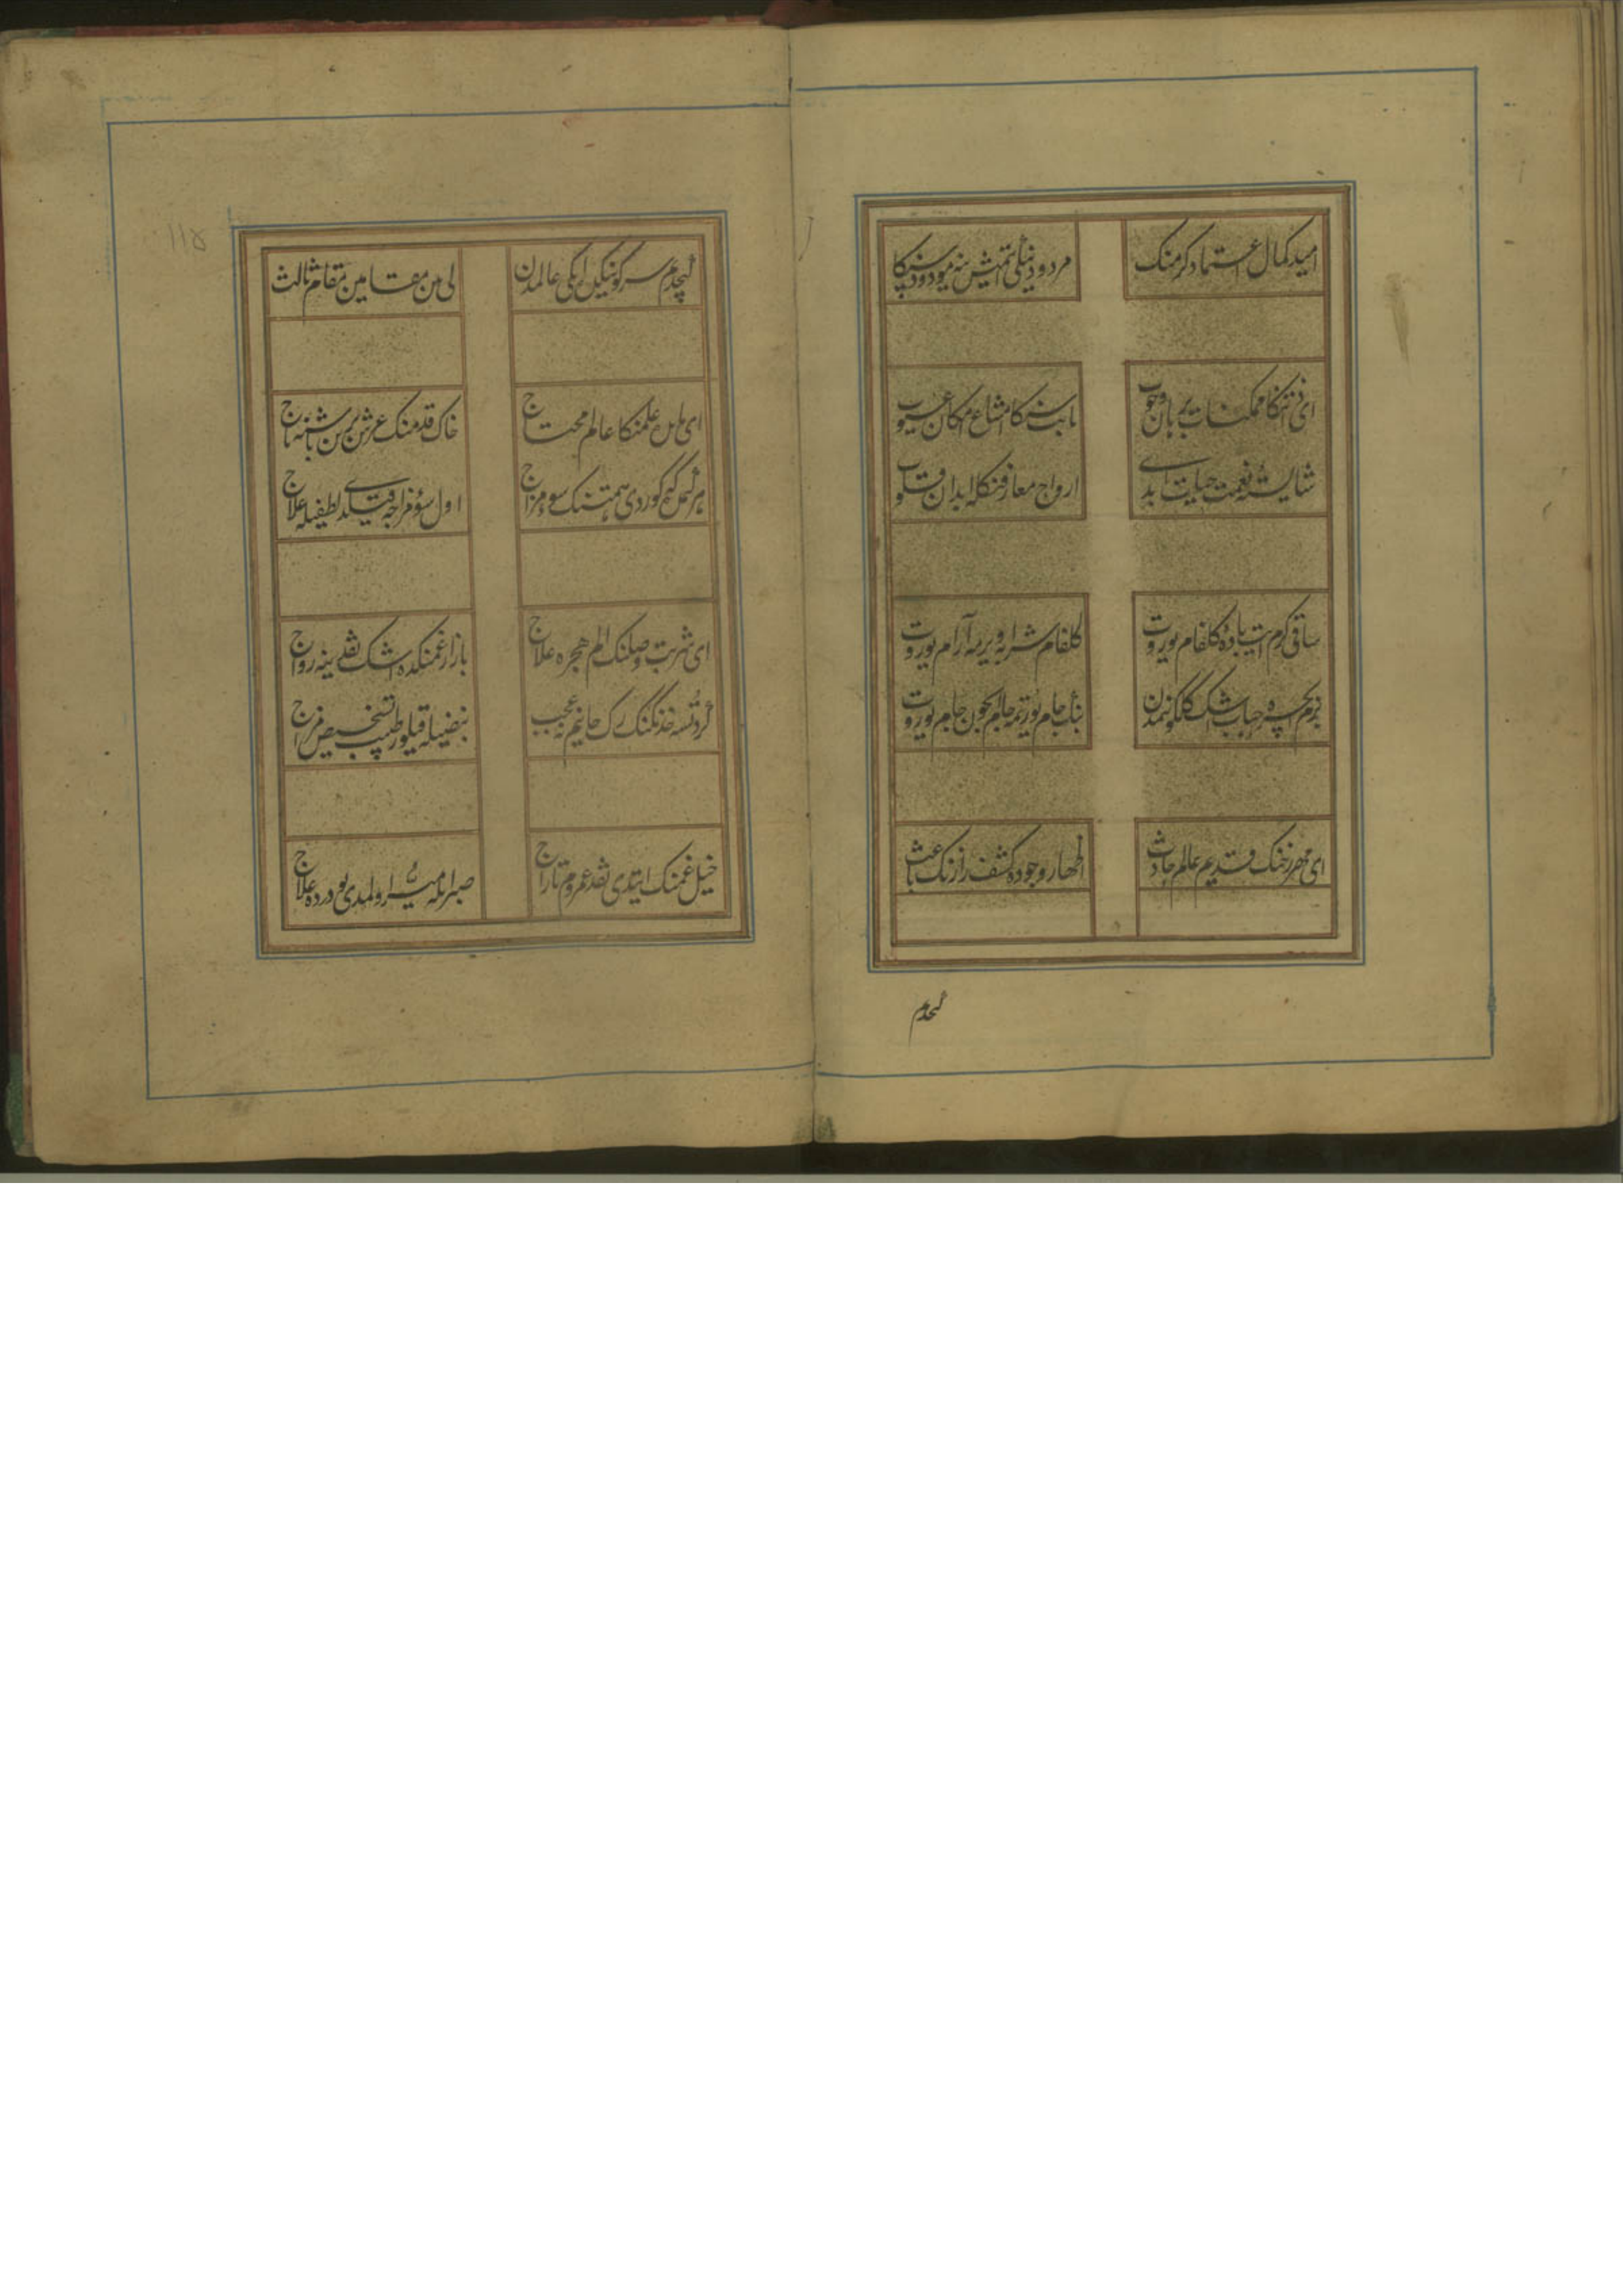 امید کمال اعتماد کرمنک مردود دنیلی ایتمش نه میودود سنکا
ای ذاتنکا ممکنات برهان وجوب ثابت سنکا امتناع امکان عیوب
شایسته نعمت حیات ابدی ارواح معارفنکله ابدان قلوب
ساقی کرم ایت باده گلفام یوروت گلفام شرابه ویرمه آرام یوروت
بزم ایچره حباب اشک گلگونمدن جام یورتمه جام یوروت
ای مهر رخنک قدیم عالم حادث اظهار وجوده کشف رازنک باعث
کیچدم
کیچدم سر کونیکله ایکی عالمدن لی من مقامین مقام ثالث
ای علمنکا عالم محتاج خاک قدمنک عرش برین باشنه تاج
هر کیم که کوردی همتنک سوء مزاج اول سوء مزاجه قیلدی لطفیله علاج
ای شربت وصلنک الم هجره علاج بازار غمنکده اشک نقدینه رواج
گر دوتسه خدنکنک رک جانیم نه عجب نبضیله قیلور طبیب تشخیص مزاج
خیل غمنک ایتدی نقد عمروم تاراج صبر ایله میسر اولمدی بو درده علاج
۱۱۵